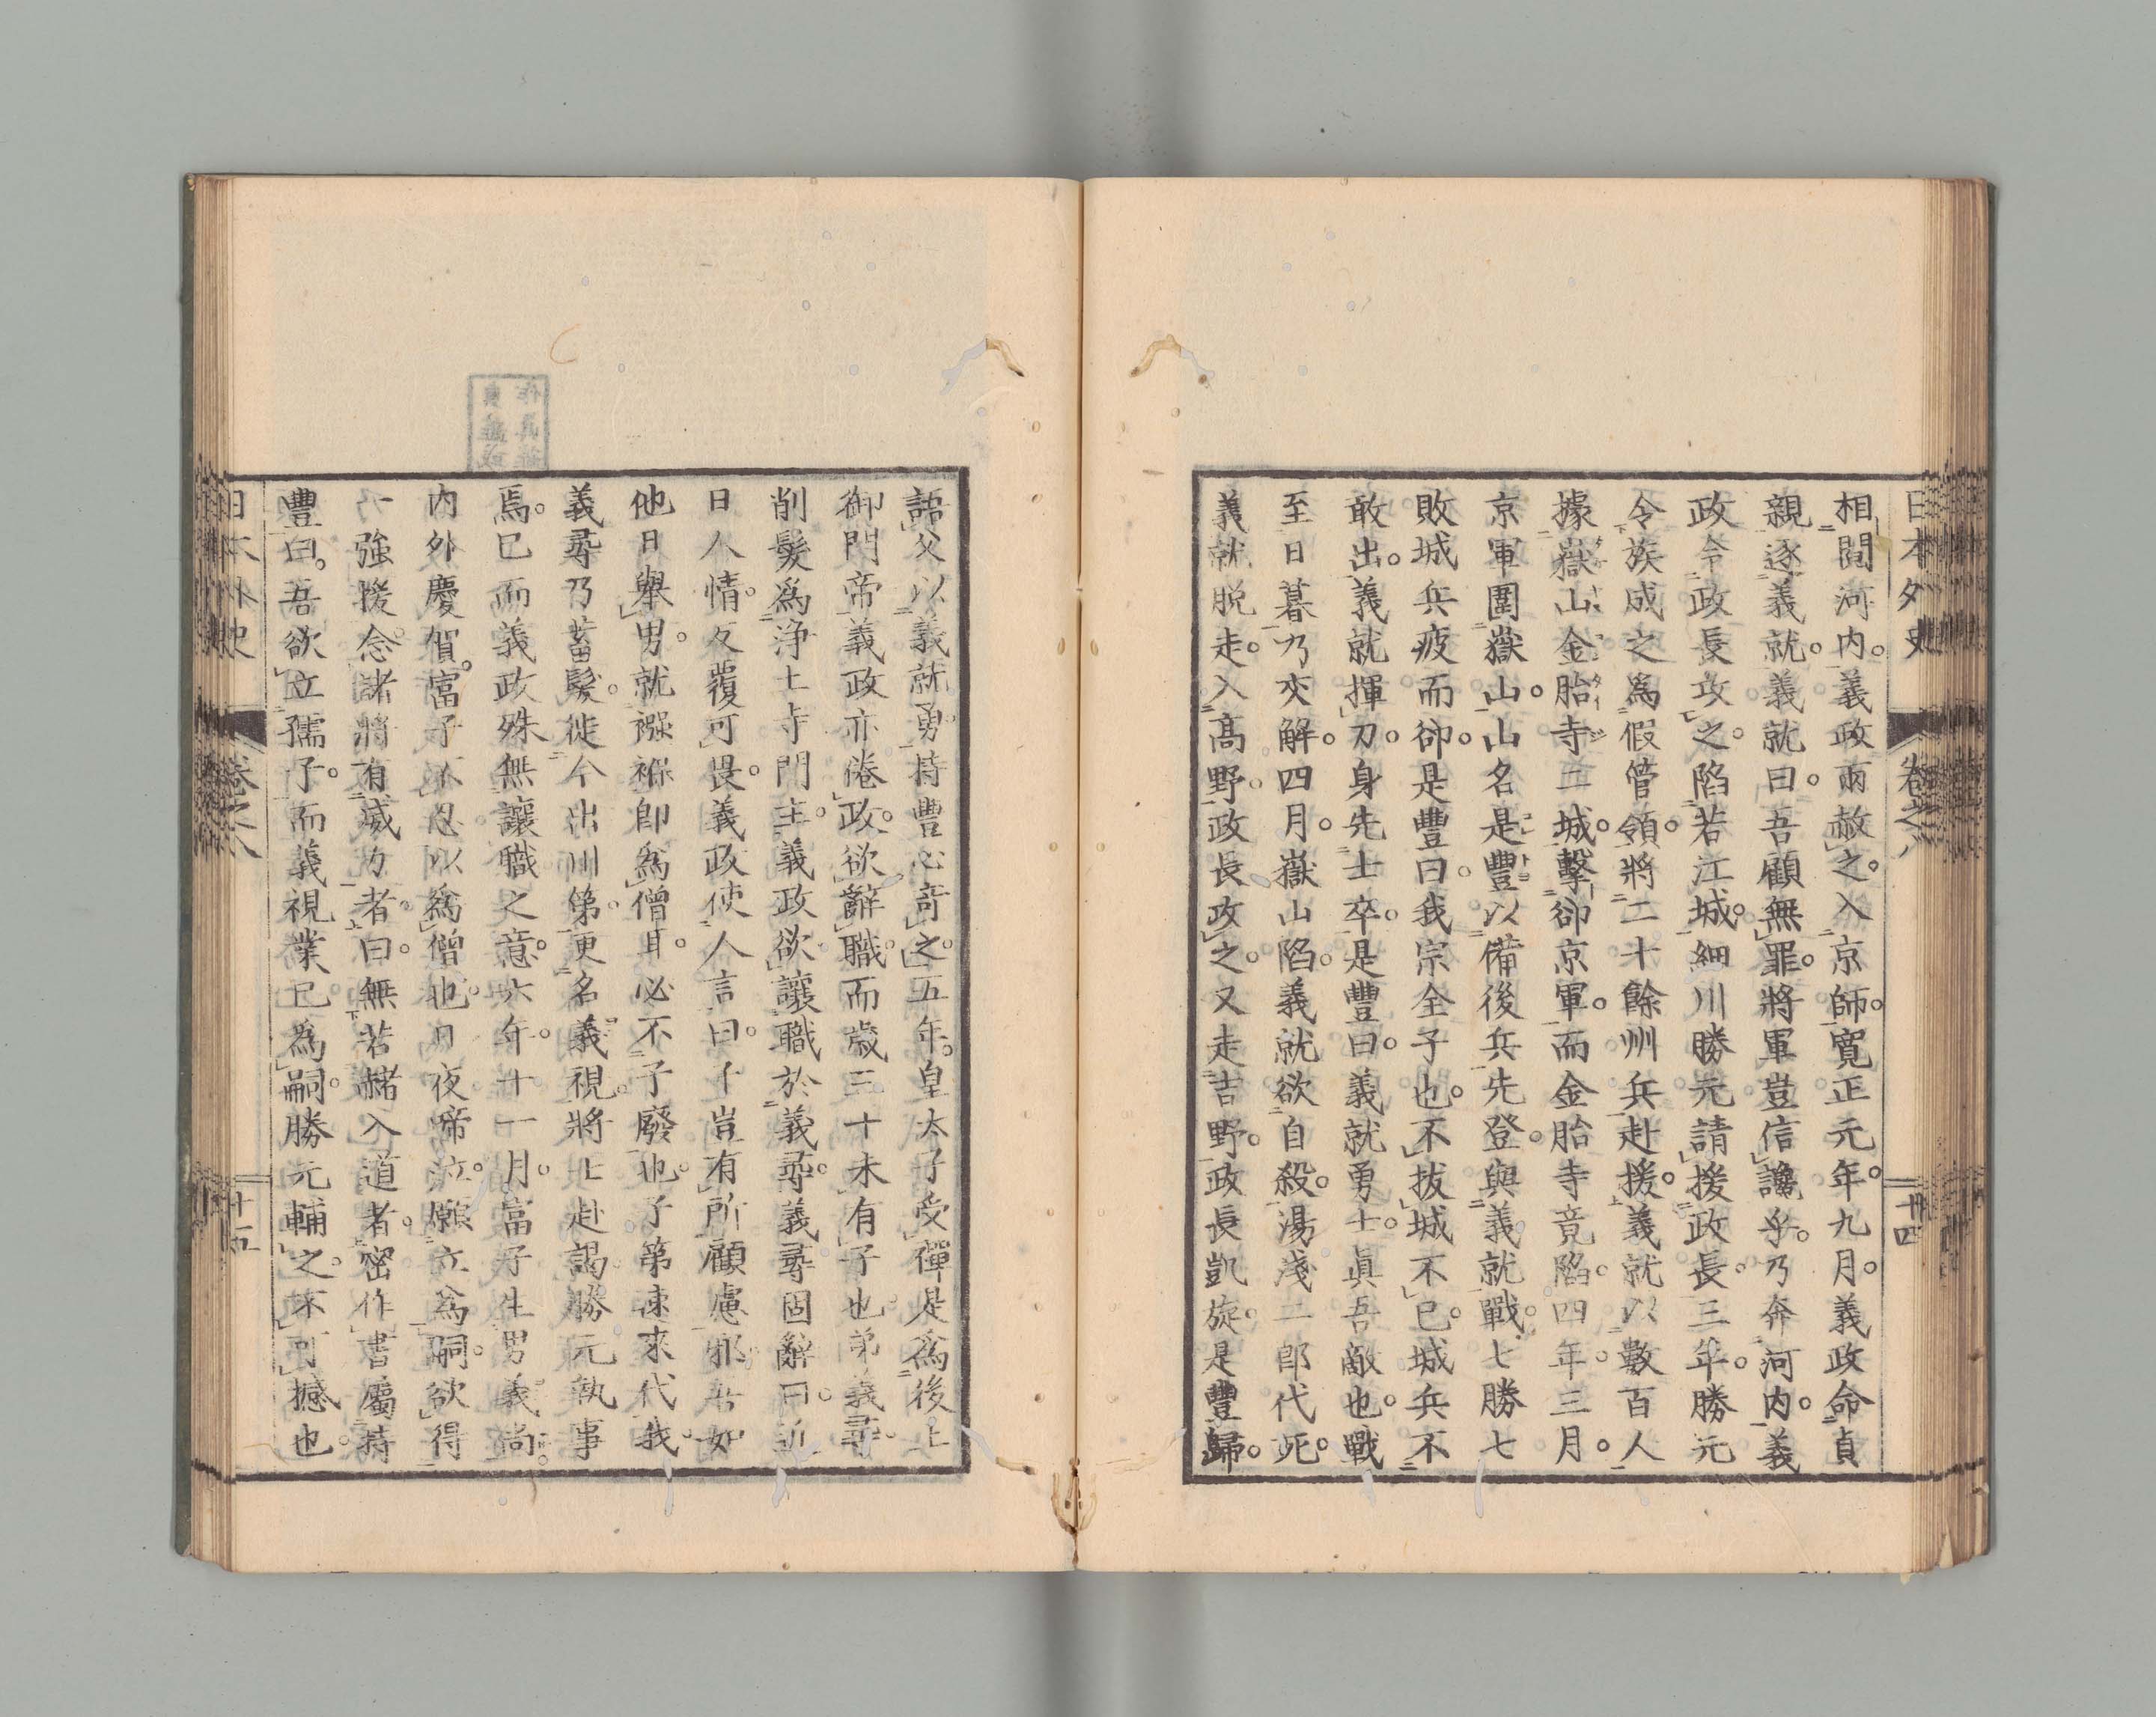 日本外史 卷之八 十四
相鬩河内。義政兩赦之。入京師。寛正元年。九月。義政命貞
親逐義就。義就曰。吾顧無罪。將軍豈信讒乎。乃奔河内。義
政令政長攻之。陷若江城。細川勝元請援政長。三年。勝元
令族成之爲假管領。將二十餘州兵赴援。義就以數百人
據嶽山金胎寺二城。擊卻京軍。而金胎寺竟陷。四年。三月。
京軍圍嶽山。山名是豐以備後兵先登。與義就戰。七勝七
敗。城兵疲而卻。是豐曰。我宗全子也。不拔城不已。城兵不
敢出。義就揮刀。身先士卒。是豐曰。義就勇士。眞吾敵也。戰
至日暮。乃交解。四月。嶽山陷。義就欲自殺。湯淺二郎代死。
義就脱走。入高野。政長攻之。又走吉野。政長凱旋。是豐歸。
語父以義就勇。持豐心奇之。五年。皇太子受禪。是爲後土
御門帝。義政亦倦政。欲辭職。而歳三十未有子也。弟義尋。
削髮爲淨土寺門主。義政欲讓職於義尋。義尋固辭曰。近
日人情。反覆可畏。義政使人言曰。子豈有所顧慮邪。吾如
他日舉男。就襁褓即爲僧耳。必不子廢也。子第速來代我。
義尋乃蓄髮。徙今出川第。更名義視。將士赴謁。勝元執事
焉。已而義政殊無讓職之意。六年。十一月。富子生男義尚。
内外慶賀。富子不忍以爲僧也。日夜啼泣。願立爲嗣。欲得
一強援。念諸將有威力者。曰。無若赭入道者。密作書屬持
豐曰。吾欲立孺子。而義視業已爲嗣。勝元輔之。不可撼也。
日本外史 卷之八 十五